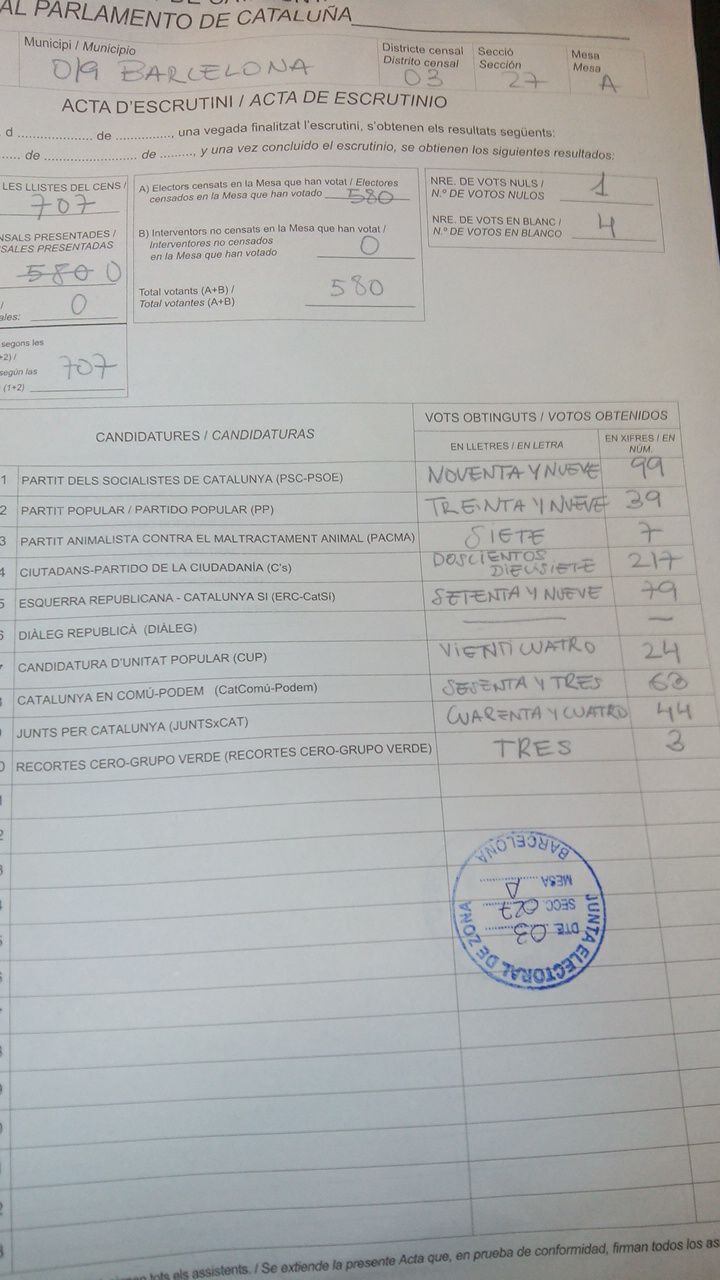 AL PARLAMENTO DE CATALUÑA
Municipi / Municipio
019 BARCELONA
Districte censal
Distrito censal
03
Secció
Sección
27
Mesa
Mesa
A
ACTA D'ESCRUTINI / ACTA DE ESCRUTINIO
d .................. de .............., una vegada finalitzat l'escrutini, s'obtenen els resultats següents:
..... de ...................... de ........., y una vez concluido el escrutinio, se obtienen los siguientes resultados:
LES LLISTES DEL CENS /
707
NSALS PRESENTADES /
SALES PRESENTADAS
580 0
/
ales: 0
segons les
+2) /
según las
(1+2) 707
A) Electors censats en la Mesa que han votat / Electores
censados en la Mesa que han votado 580
B) Interventors no censats en la Mesa que han votat /
Interventores no censados
en la Mesa que han votado 0
Total votants (A+B) /
Total votantes (A+B) 580
NRE. DE VOTS NULS /
N.º DE VOTOS NULOS 1
NRE. DE VOTS EN BLANC /
N.º DE VOTOS EN BLANCO 4
CANDIDATURES / CANDIDATURAS
VOTS OBTINGUTS / VOTOS OBTENIDOS
EN LLETRES / EN LETRA
EN XIFRES / EN
NÚM.
1 PARTIT DELS SOCIALISTES DE CATALUNYA (PSC-PSOE) NOVENTA Y NUEVE 99
2 PARTIT POPULAR / PARTIDO POPULAR (PP) TREINTA Y NUEVE 39
3 PARTIT ANIMALISTA CONTRA EL MALTRACTAMENT ANIMAL (PACMA) SIETE 7
4 CIUTADANS-PARTIDO DE LA CIUDADANÍA (C's) DOSCIENTOS DIECISIETE 217
5 ESQUERRA REPUBLICANA - CATALUNYA SI (ERC-CatSí) SETENTA Y NUEVE 79
6 DIÀLEG REPUBLICÀ (DIÀLEG) — —
CANDIDATURA D'UNITAT POPULAR (CUP) VIENTICUATRO 24
CATALUNYA EN COMÚ-PODEM (CatComú-Podem) SESENTA Y TRES 63
JUNTS PER CATALUNYA (JUNTSxCAT) CUARENTA Y CUATRO 44
0 RECORTES CERO-GRUPO VERDE (RECORTES CERO-GRUPO VERDE) TRES 3
JUNTA ELECTORAL DE ZONA
DTE. 03
SECC. 027
MESA A
BARCELONA
tots els assistents. / Se extiende la presente Acta que, en prueba de conformidad, firman todos los as